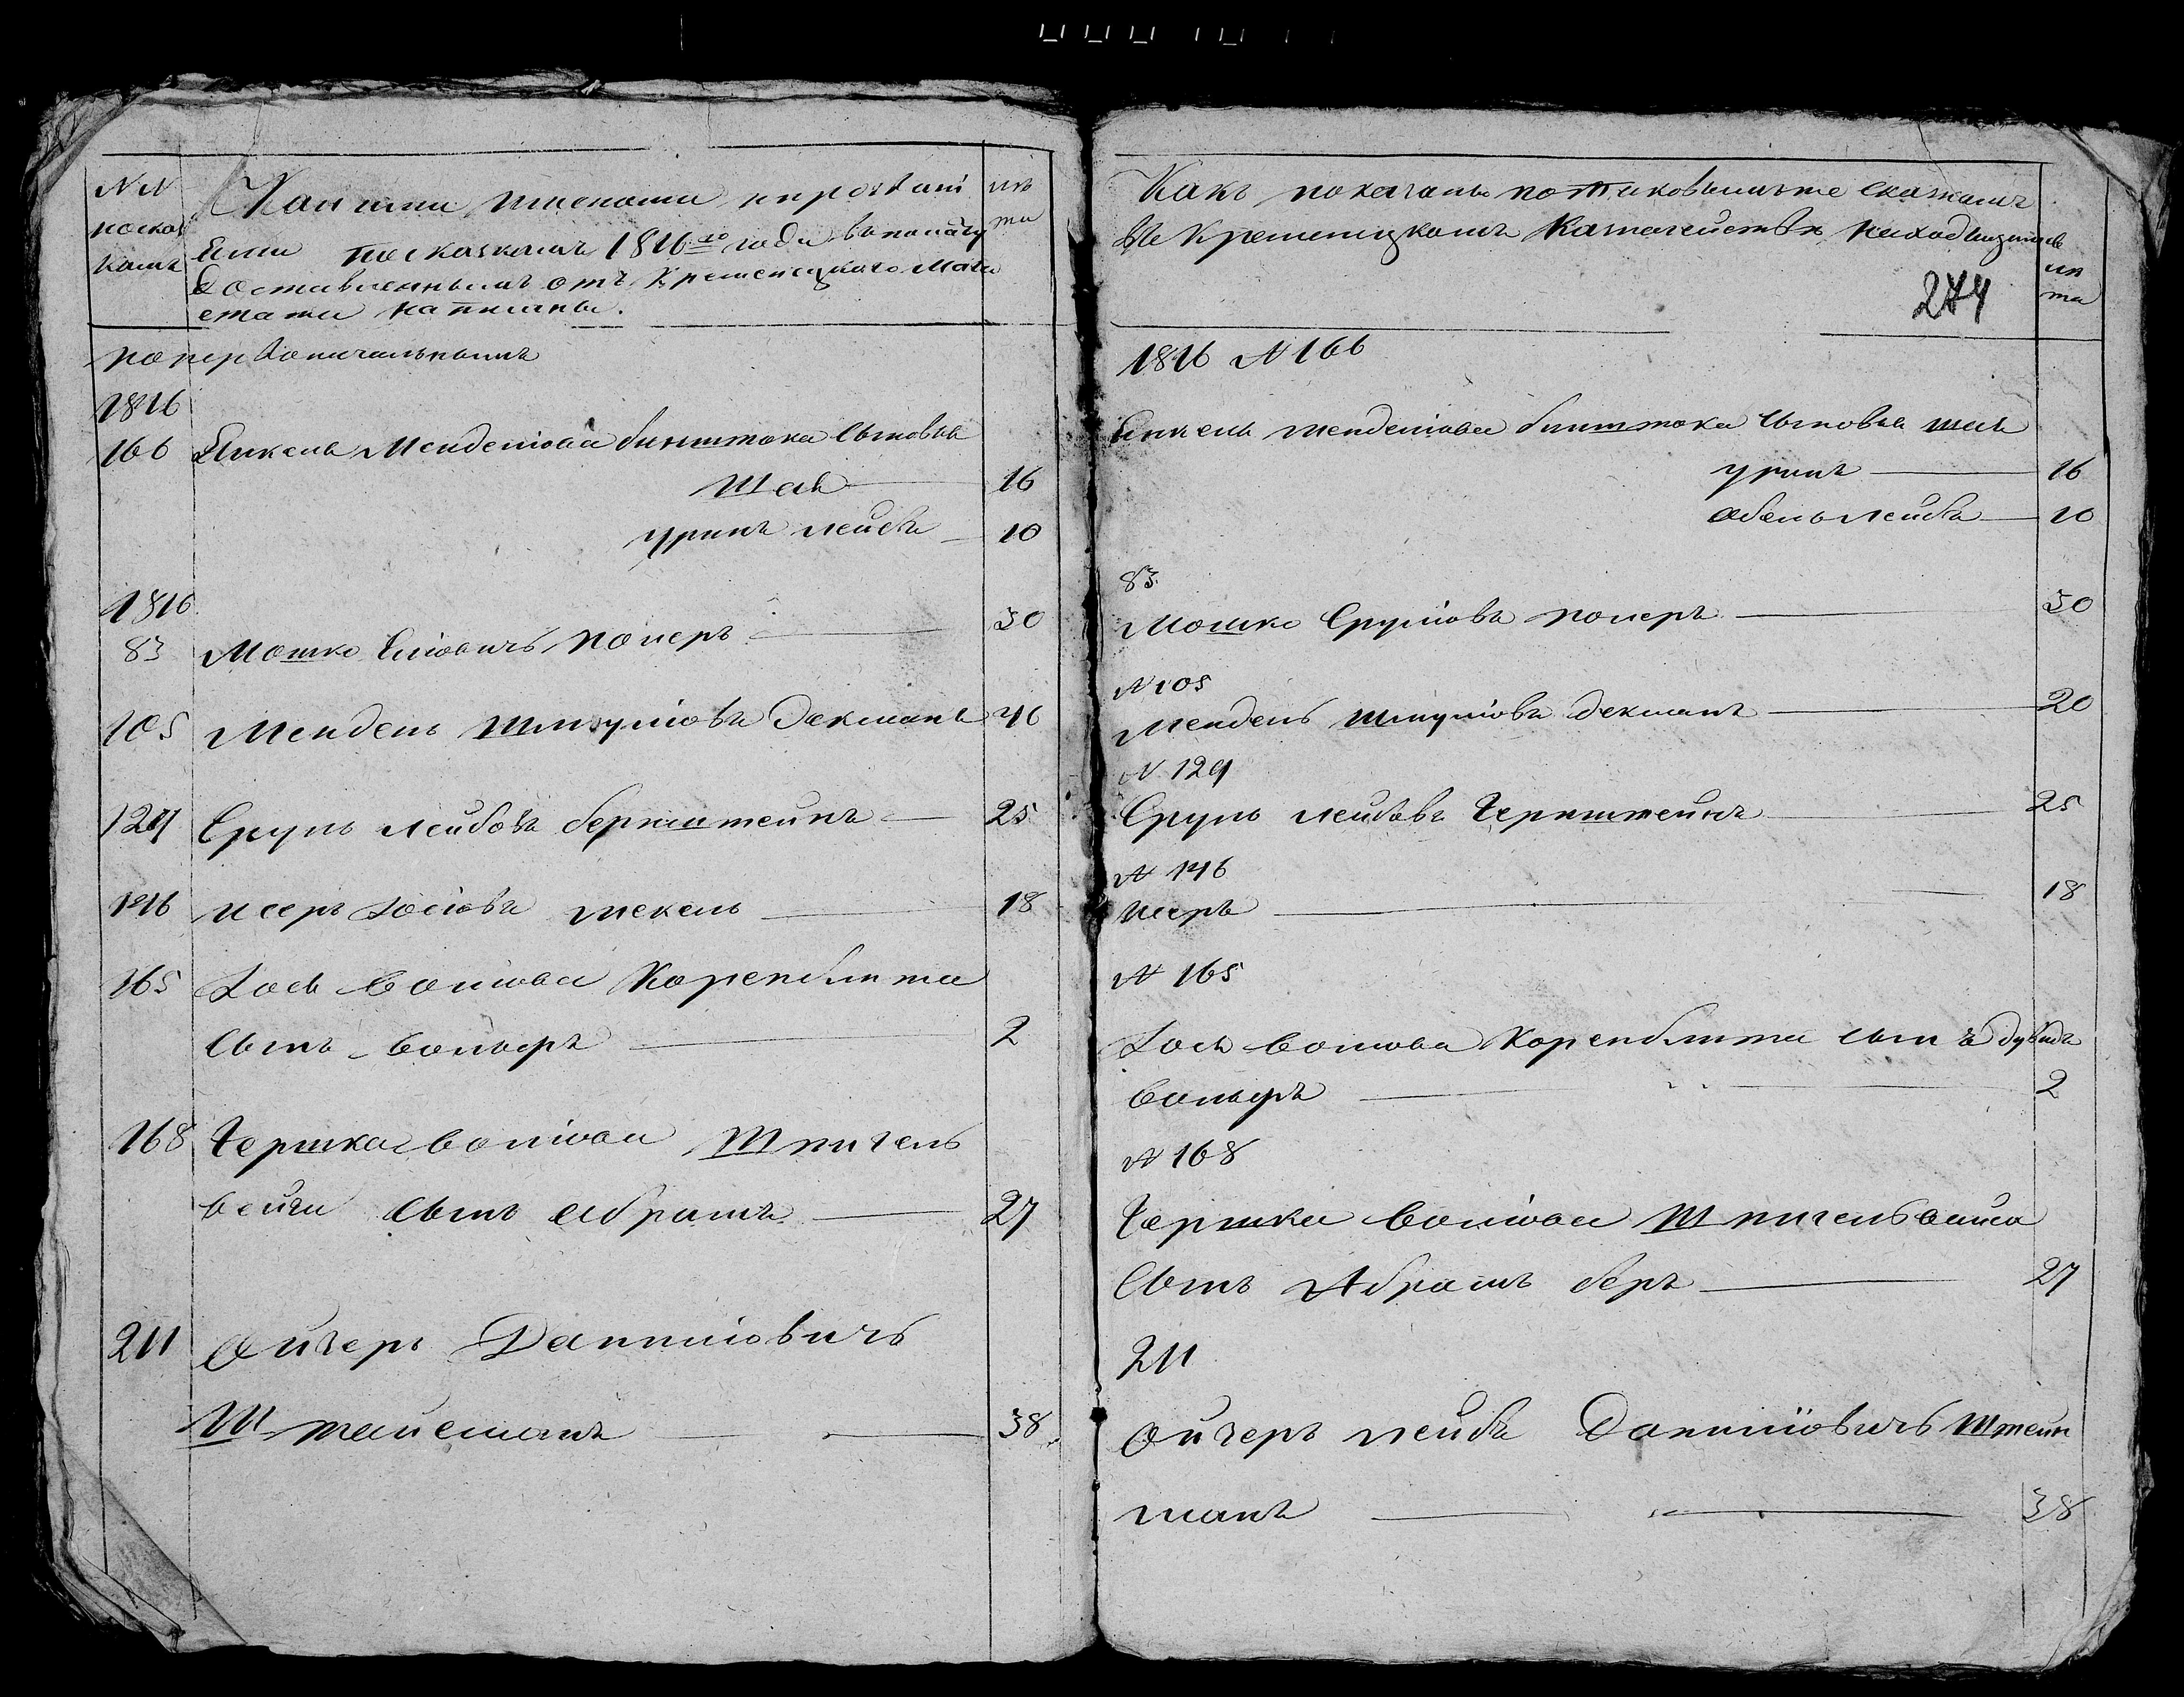 №№
поска
камъ
Какими имянами и прозвані
ями по сказкамъ 1816го года в палату
доставленнымъ отъ Кременецкаго маги
стата написаны.
лѣ
та
по первоначальнымъ
1816
166 Янкеля Менделіова бинштока сыновья
Шая 16
урынъ лейба 10
1816
83 Мошко Еліовичъ поперъ 30
105 Мендель Шмуліовъ Декманъ 46
129 Сруль лейбовъ бернштейнъ 25
146 исеръ Іосіовъ мекель 18
165 Іося Волiова Коренблита
сынъ Вольфъ 2
168 Гершка Волiова Шпигель
вейга сынъ Абрамъ 27
211 Ойзеръ Даниліовичъ
Штайеманъ 38
Какъ показаны по таковымъ же сказкамъ
въ Кременецкомъ Казначействѣ находящимся
лѣ
та
274
1816 №166
Янкеля менделіова бинштока сыновья шая
урынъ 16
Абель лейба 10
83
Мошко Сруліовъ поперъ 30
№105
Мендель шмуліовъ декманъ 20
№ 129
Сруль лейбовъ Гернштейнъ 25
№ 146
исеръ 18
№ 165
Іося Волiова Коренблита сынъ дувидъ
Вольфъ 2
№ 168
Гершка Волiова Шпигельвайга
Сынъ Абрамъ беръ 27
211
Ойзеръ лейба Даниліовичъ Штейн
манъ 38